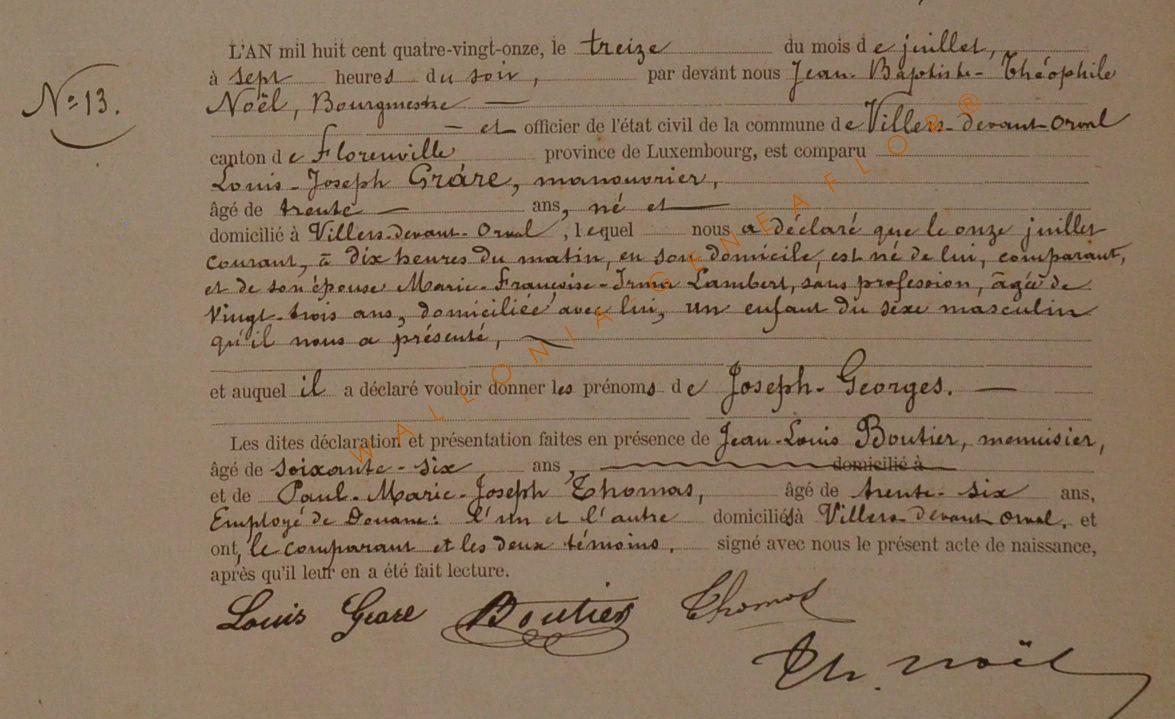 L'AN mil huit cent quatre-vingt-onze, le treize du mois de juillet,
à sept heures du soir, par devant nous Jean-Baptiste-Théophile
Nº 13. Noël, Bourgmestre —
— et officier de l'état civil de la commune de Villers-devant-Orval
canton de Florenville province de Luxembourg, est comparu
Louis-Joseph Gråre, manouvrier,
âgé de trente — ans, né et —
domicilié à Villers-devant-Orval, lequel nous a déclaré que le onze juillet
courant, à dix heures du matin, en son domicile, est né de lui, comparant,
et de son épouse Marie-Françoise-Irma Lambert, sans profession, âgée de
Vingt-trois ans, domiciliée avec lui, un enfant du sexe masculin
qu'il nous a présenté, —
et auquel il a déclaré vouloir donner les prénoms de Joseph-Georges. —
Les dites déclaration et présentation faites en présence de Jean-Louis Boutier, menuisier,
âgé de soixante-six ans, domicilié à
et de Paul-Marie-Joseph Thomas, âgé de trente-six ans,
Employé de Douane: l'un et l'autre domiciliés à Villers-devant-Orval, et
ont, le comparant et les deux témoins, signé avec nous le présent acte de naissance,
après qu'il leur en a été fait lecture.
Louis Grare Boutier Thomas
Th. Noël
WALLONIA GENEAFLOR®